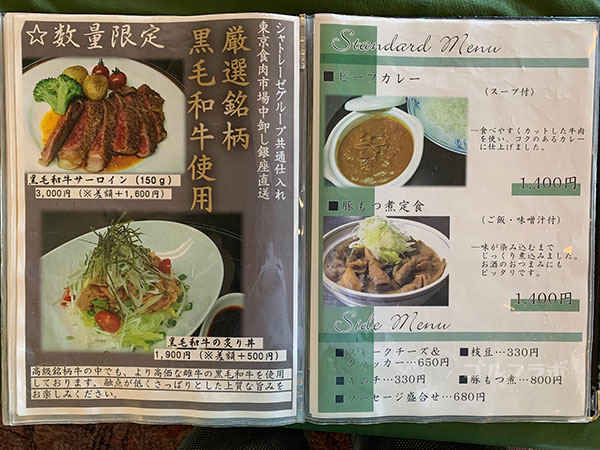 ☆数量限定
シャトレーゼグループ共通仕入れ
東京食肉市場中卸し銀座直送
厳選銘柄
黒毛和牛使用
黒毛和牛サーロイン（150g）
3,000円（※差額＋1,600円）
黒毛和牛の炙り丼
1,900円（※差額＋500円）
高級銘柄牛の中でも、より高価な雌牛の黒毛和牛を使用
しております。融点が低くさっぱりとした上質な旨みを
お楽しみください。
Standard Menu
■ビーフカレー
（スープ付）
―食べやすくカットした牛肉
を使い、コクのあるカレー
に仕上げました。
1,400円
■豚もつ煮定食
（ご飯・味噌汁付）
―味が染み込むまで
じっくり煮込みました。
お酒のおつまみにも
ピッタリです。
1,400円
Side Menu
■スモークチーズ＆
クラッカー…650円
■キムチ…330円
■ソーセージ盛合せ…680円
■枝豆…330円
■豚もつ煮…800円
ゴルフラボ